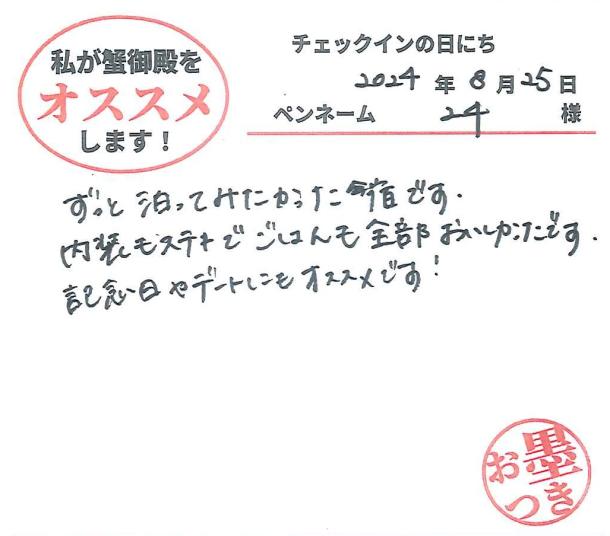 私が蟹御殿を
オススメ
します！
チェックインの日にち
2024年8月25日
ペンネーム 24 様
ずっと泊ってみたかったお宿です.
内装もステキでごはんも全部おいしかったです.
記念日やデートにもオススメです!
お墨
つき